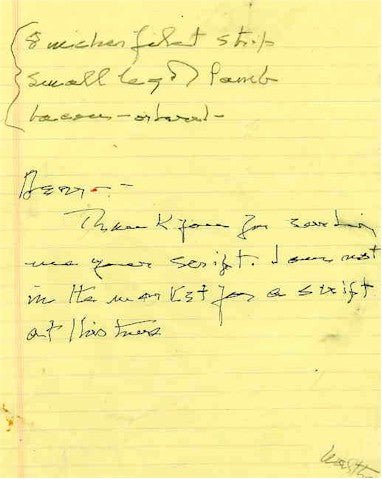 8 inches filet strip
small leg of lamb
bacon -
Dear -
Thank you for sending
me your script. I am not
in the market for a script
at this time